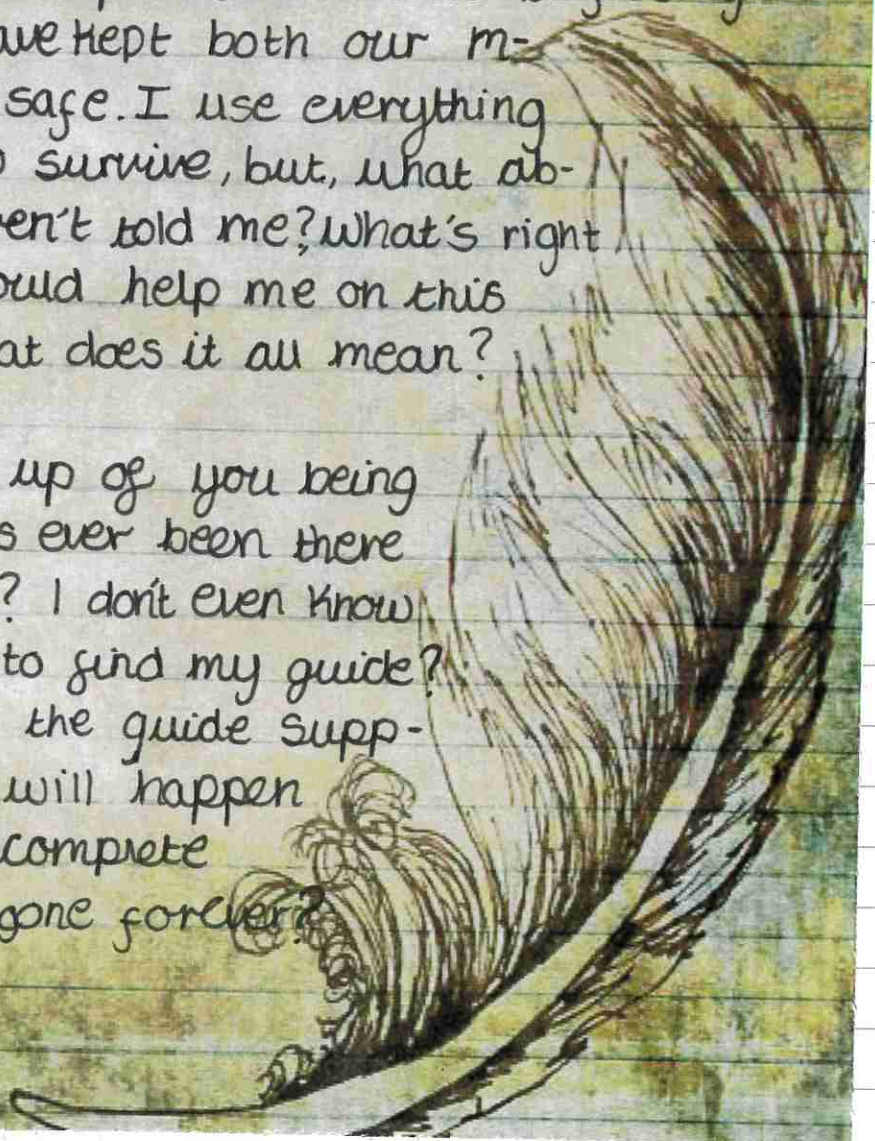 we kept both our m-
safe. I use everything
survive, but, what ab-
en't told me? What's right
ould help me on this
at does it all mean?
up of you being
s ever been there
? I don't even know
to find my guide?
the guide supp-
will happen
complete
gone forever?